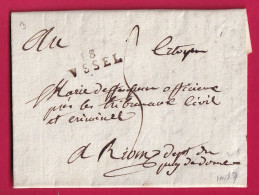 Au Citoyen
8
VESEL
Marie deffenseur officieux
près les tribunaux Civil
et criminel
a Riom dept du
puy de dome